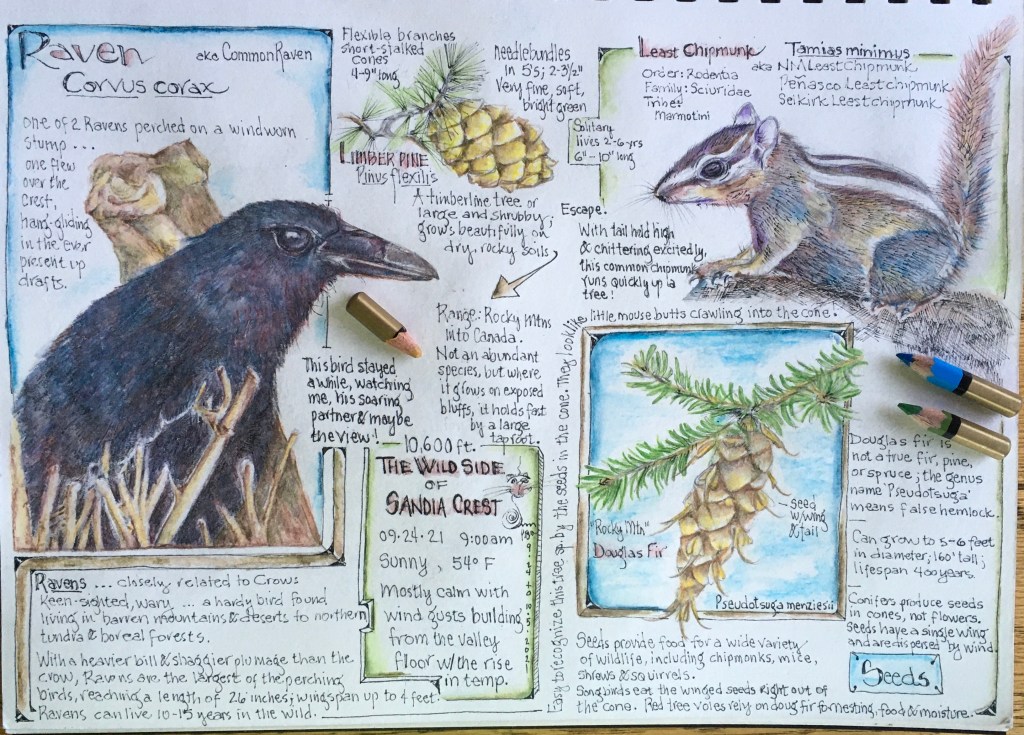 Raven
aka Common Raven
Corvus corax
one of 2 Ravens perched on a windworn
stump ...
one flew
over the
Crest,
hang-gliding
in the ever
present up
drafts.
This bird stayed
a while, watching
me, his soaring
partner & maybe
the view!
Ravens ... closely related to Crow:
keen-sighted, wary ... a hardy bird found
living in barren mountains & deserts to northern
tundra & boreal forests.
With a heavier bill & shaggier plumage than the
crow, Ravens are the largest of the perching
birds, reaching a length of 26 inches; wingspan up to 4 feet.
Ravens can live 10-15 years in the wild.
Flexible branches
short-stalked
cones
4-9" long
needlebundles
in 5's; 2-3½"
very fine, soft,
bright green
LIMBER PINE
Pinus flexilis
A timberline tree or
large and shrubby;
grows beautifully on
dry, rocky soils
Range: Rocky Mtns
into Canada.
Not an abundant
species, but where
it grows on exposed
bluffs, it holds fast
by a large
taproot.
10,600 ft.
THE WILD SIDE
OF
SANDIA CREST
09.24.21 9:00am
Sunny, 54° F
Mostly calm with
wind gusts building
from the valley
floor w/the rise
in temp.
Least Chipmunk
Tamias minimus
Order: Rodentia
Family: Sciuridae
Tribe:
Marmotini
aka NM Least Chipmunk
Peñasco Least chipmunk
Selkirk Least chipmunk
Solitary
lives 2-6-yrs
6"-10" long
Escape.
With tail held high
& chittering excitedly,
this common chipmunk
runs quickly up a
tree!
Easy to recognize this tree by the seeds in the cone. They look like
little mouse butts crawling into the cone!
seed
w/wing
& tail
"Rocky Mtn"
Douglas Fir
Pseudotsuga menziesii
Douglas fir is
not a true fir, pine,
or spruce; the genus
name 'Pseudotsuga'
means false hemlock.
Can grow to 5-6 feet
in diameter; 160' tall;
lifespan 400 years.
Conifers produce seeds
in cones, not flowers.
Seeds have a single wing
and are dispersed by wind.
Seeds
Seeds provide food for a wide variety
of wildlife, including chipmonks, mice,
shrews & squirrels.
Songbirds eat the winged seeds right out of
the cone. Red tree voles rely on doug fir for nesting, food & moisture.